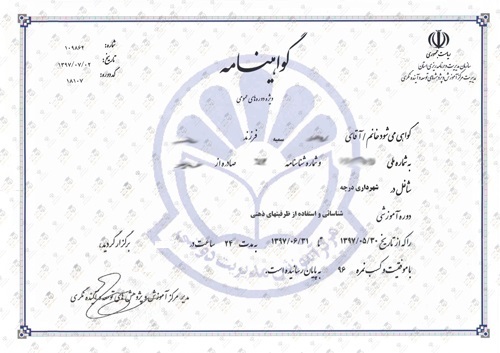 گواهینامه
ویژه دوره‌های عمومی
ریاست جمهوری
سازمان مدیریت و برنامه ریزی استان
مدیریت مرکز آموزش و پژوهش‌های توسعه و آینده نگری
شماره: ۱۰۹۸۶۲
تاریخ: ۱۳۹۷/۰۷/۰۲
کد دوره: ۱۸۱۰۷
گواهی می شود خانم / آقای فرزند
به شماره ملی و شماره شناسنامه صادره از
شاغل در شهرداری درچه
دوره آموزشی شناسائی و استفاده از ظرفیتهای ذهنی
را که از تاریخ ۱۳۹۷/۰۵/۳۰ تا ۱۳۹۷/۰۶/۳۱ به مدت ۲۴ ساعت در برگزار گردید،
با موفقیت و کسب نمره ۹۶ به پایان رسانیده است.
مدیر مرکز آموزش و پژوهش‌های توسعه و آینده نگری
مرکز آموزش مدیریت دولتی